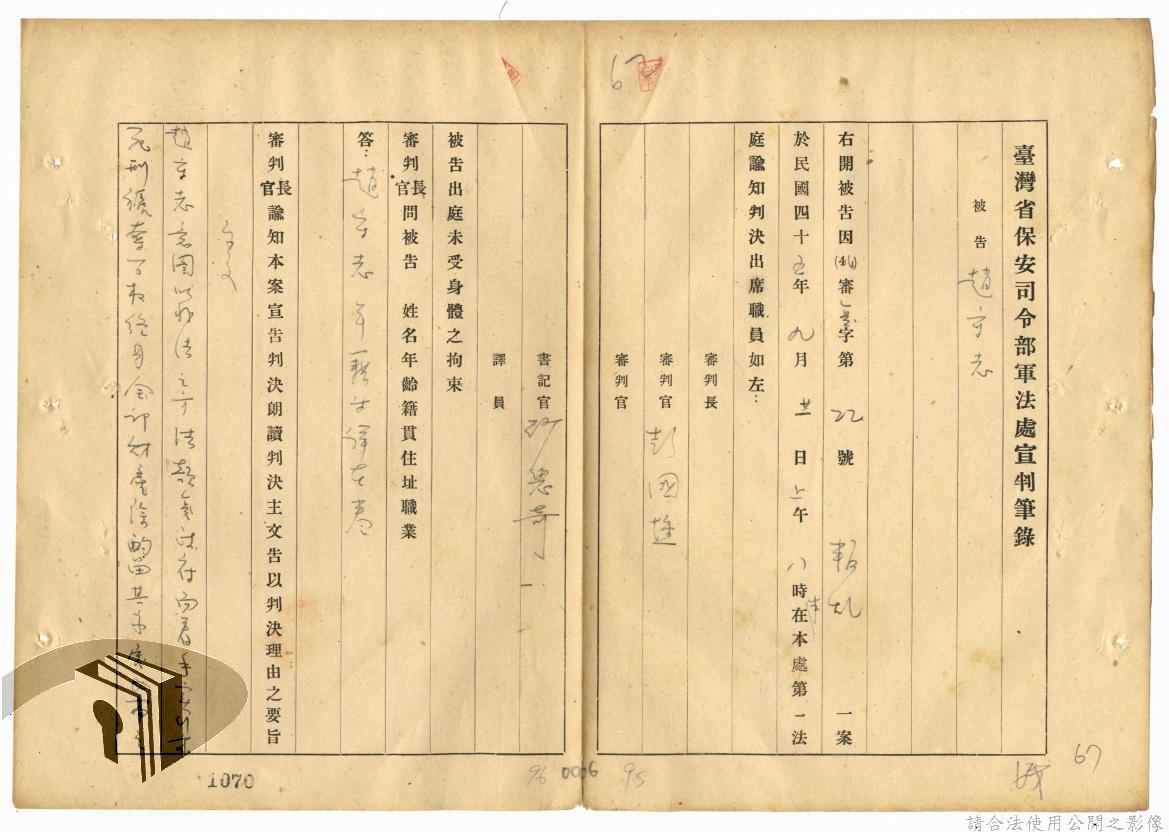 臺灣省保安司令部軍法處宣判筆錄
被告 趙守志
右開被告因(44)審字第22號 叛亂 一案
於民國四十五年九月廿一日上午八時半在本處第一法
庭諭知判決出席職員如左：
審判長
審判官 彭國壎
審判官
書記官
譯員
被告出庭未受身體之拘束
審判官長問被告 姓名年齡籍貫住址職業
答：趙守志 年籍詳在卷
審判官長諭知本案宣告判決朗讀判決主文告以判決理由之要旨
主文
趙守志意圖以非法之方法顛覆政府而著手實行處
死刑褫奪公權終身全部財產除酌留其家屬
67
67
1070
96
0006
95
請合法使用公開之影像